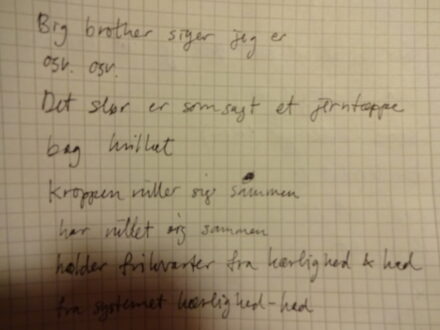 Big brother siger jeg er
osv. osv.
Det slør er som sagt et jerntæppe
bag hvilket
kroppen ruller sig sammen
har rullet sig sammen
holder frikvarter fra kærlighed & had
fra systemet kærlighed-had